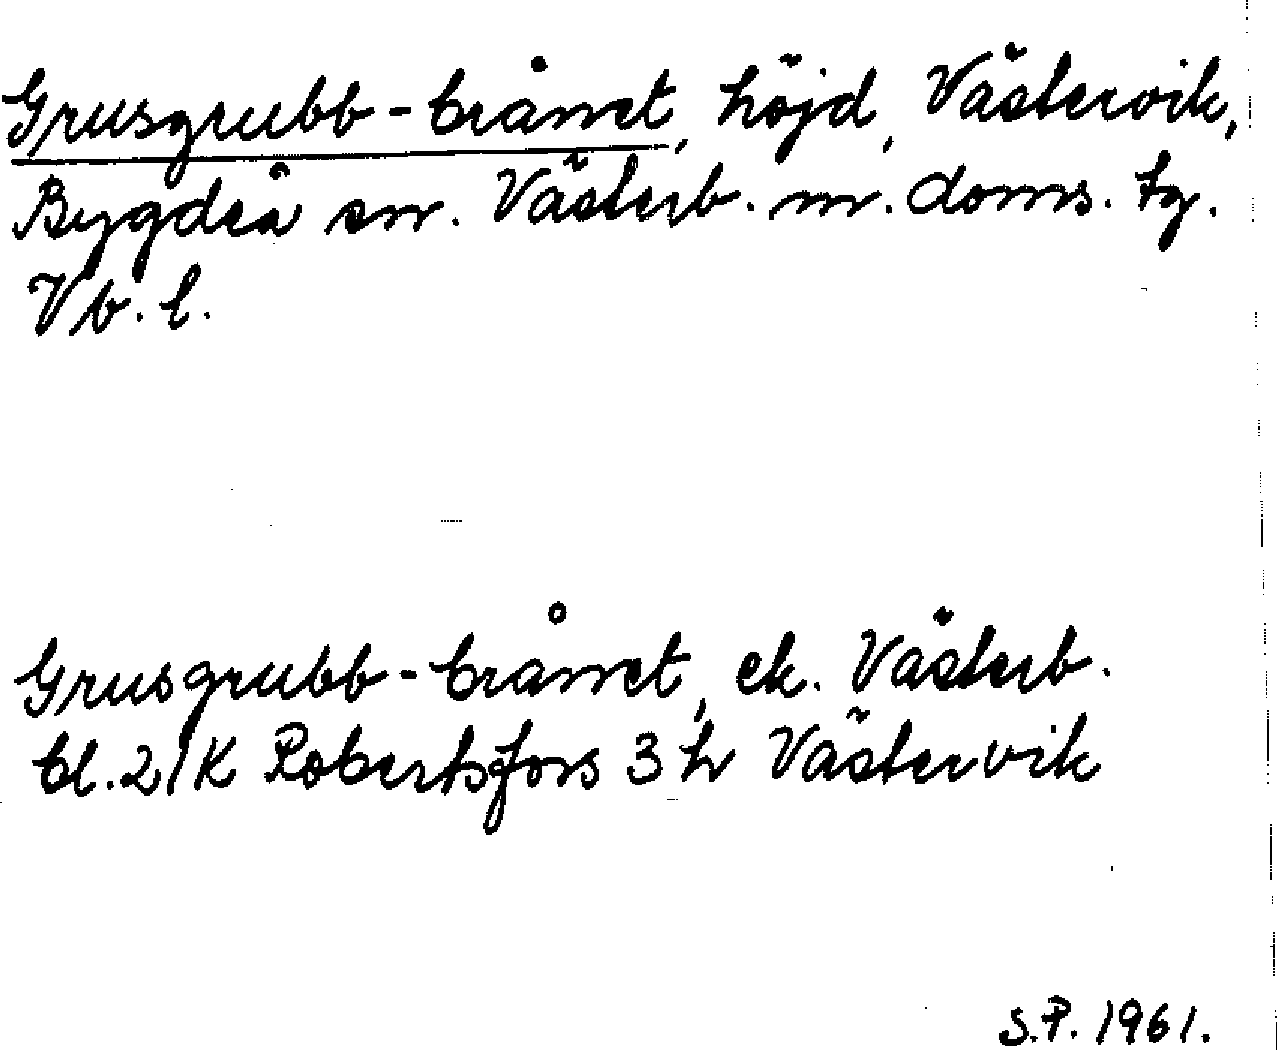 Grusgrubb-brånet, höjd, Västervik,
Bygdeå sn. Västerb. m. doms. tg.
Vb. l.
Grusgrubb-brånet, ek. Västerb.
bl. 21K Robertsfors 3 h Västervik
S.P. 1961.